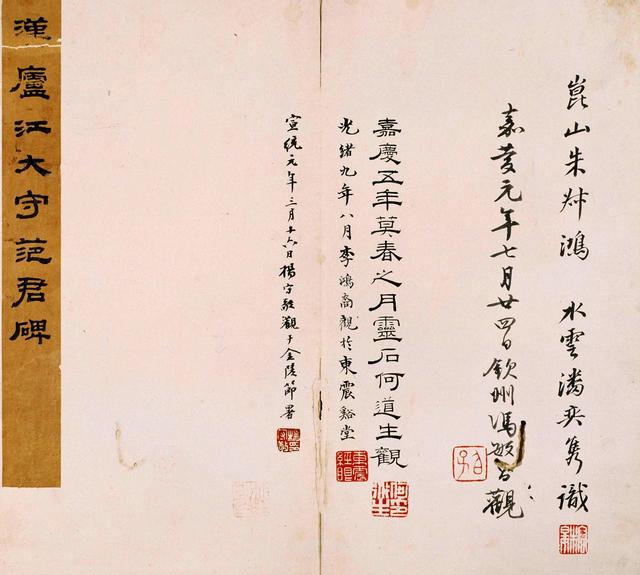 崑山朱鴻 水雲潘奕雋識
嘉慶元年七月廿四日欽州馮敏昌觀
嘉慶五年莫春之月靈石何道生觀
光緒九年八月李鴻裔觀於東震谿堂
宣統元年三月十六日楊守敬觀于金陵節署
漢廬江大守范君碑